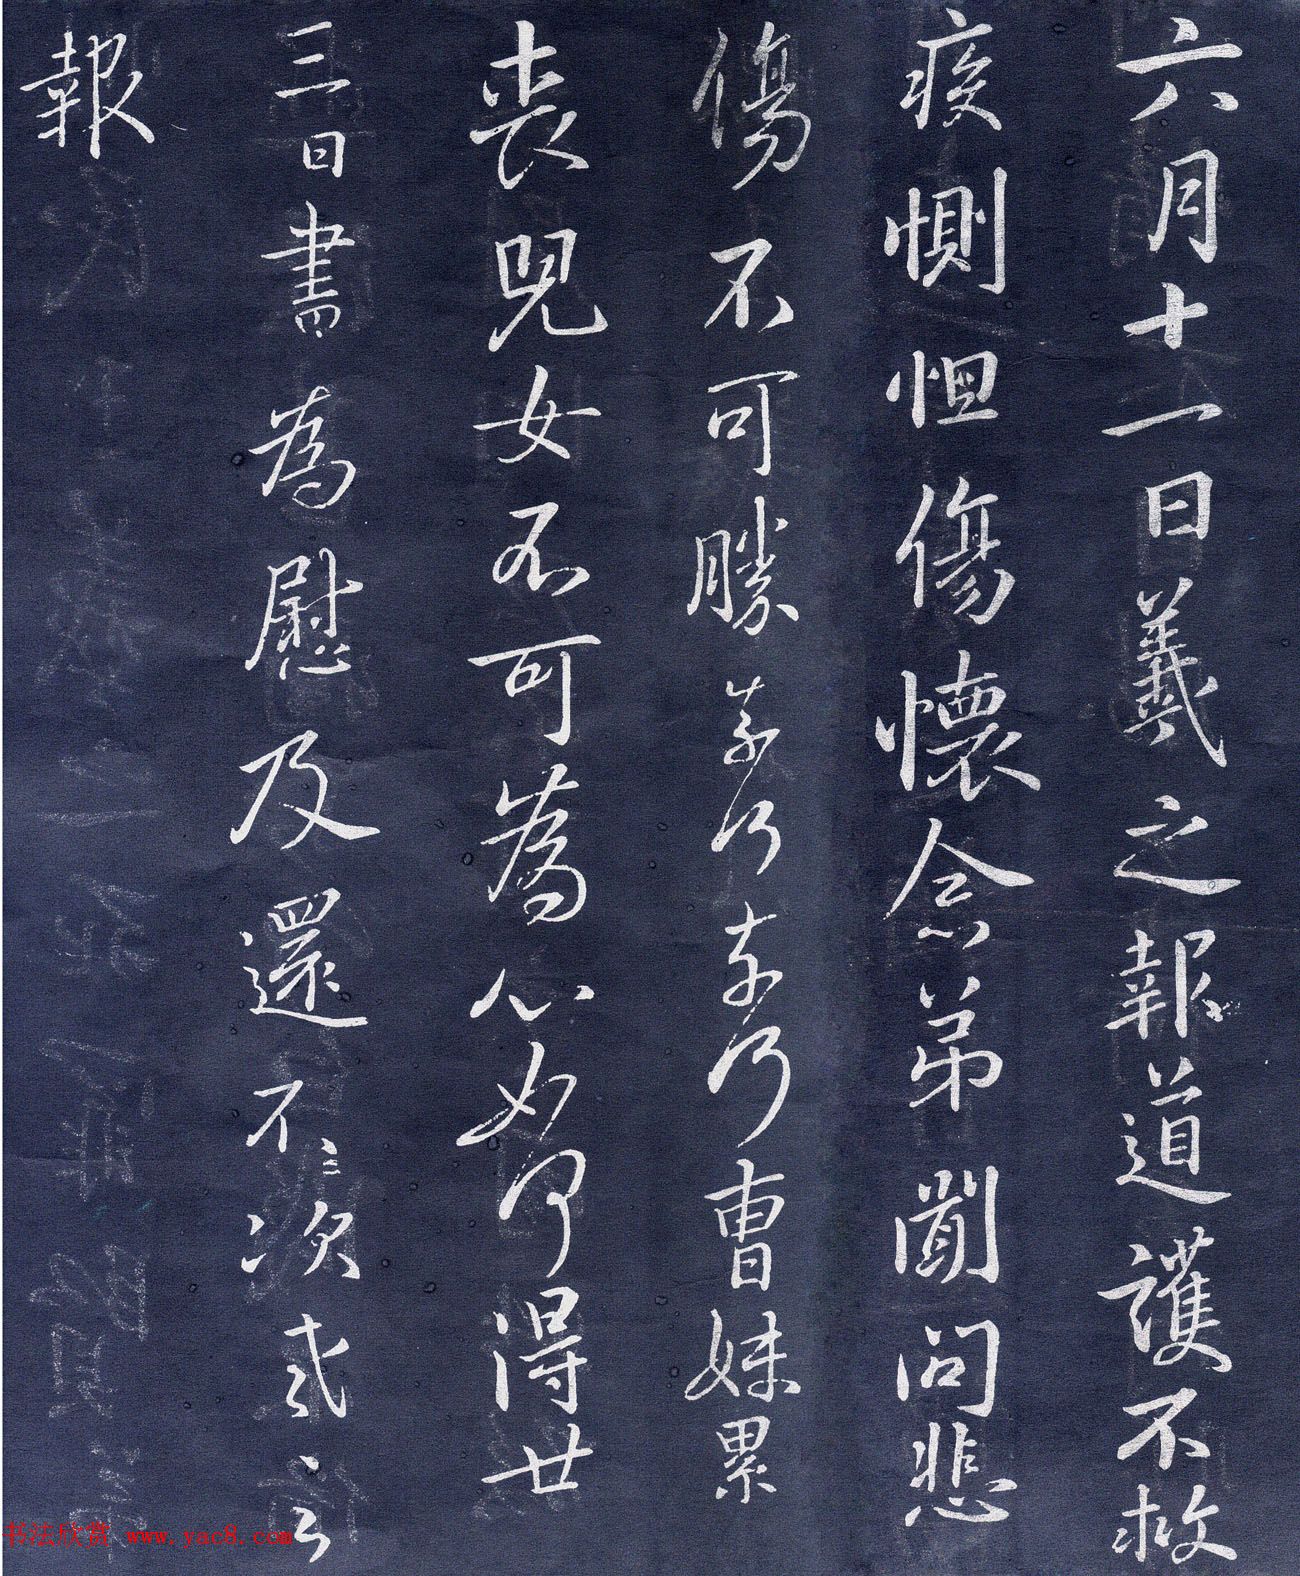 六月十一日羲之報道護不救
疾惻怛傷懷念弟聞問悲
傷不可勝奈何奈何曹妹累
喪兒女不可為心如何得廿
三日書為慰及還不次羲之
報
书法欣赏 www.yac8.com